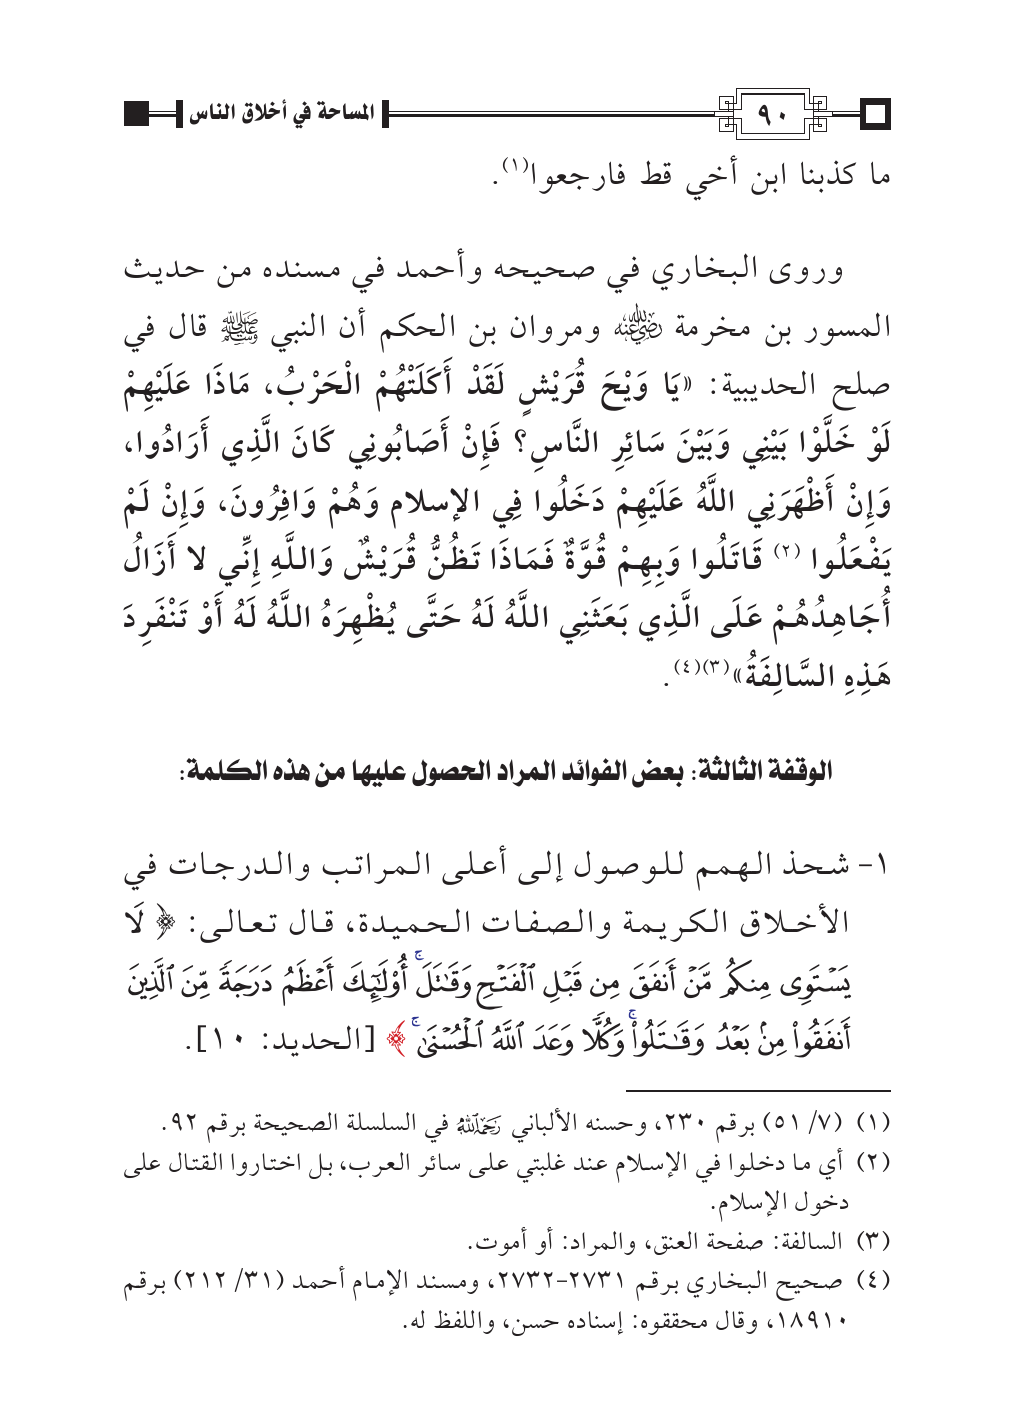 ٩٠
المساحة في أخلاق الناس
ما كذبنا ابن أخي قط فارجعوا(١).
وروى البخاري في صحيحه وأحمد في مسنده من حديث
المسور بن مخرمة رضي الله عنه ومروان بن الحكم أن النبي ﷺ قال في
صلح الحديبية: «يَا وَيْحَ قُرَيْشٍ لَقَدْ أَكَلَتْهُمْ الْحَرْبُ، مَاذَا عَلَيْهِمْ
لَوْ خَلَّوْا بَيْنِي وَبَيْنَ سَائِرِ النَّاسِ؟ فَإِنْ أَصَابُونِي كَانَ الَّذِي أَرَادُوا،
وَإِنْ أَظْهَرَنِي اللَّهُ عَلَيْهِمْ دَخَلُوا فِي الإسلام وَهُمْ وَافِرُونَ، وَإِنْ لَمْ
يَفْعَلُوا (٢) قَاتَلُوا وَبِهِمْ قُوَّةٌ فَمَاذَا تَظُنُّ قُرَيْشٌ وَاللَّهِ إِنِّي لا أَزَالُ
أُجَاهِدُهُمْ عَلَى الَّذِي بَعَثَنِي اللَّهُ لَهُ حَتَّى يُظْهِرَهُ اللَّهُ لَهُ أَوْ تَنْفَرِدَ
هَذِهِ السَّالِفَةُ»(٣)(٤).
الوقفة الثالثة: بعض الفوائد المراد الحصول عليها من هذه الكلمة:
١- شحذ الهمم للوصول إلى أعلى المراتب والدرجات في
الأخلاق الكريمة والصفات الحميدة، قال تعالى: ﴿ لَا
يَسْتَوِى مِنكُم مَّنْ أَنفَقَ مِن قَبْلِ ٱلْفَتْحِ وَقَٰتَلَ ۚ أُو۟لَٰٓئِكَ أَعْظَمُ دَرَجَةً مِّنَ ٱلَّذِينَ
أَنفَقُوا۟ مِنۢ بَعْدُ وَقَٰتَلُوا۟ ۚ وَكُلًّا وَعَدَ ٱللَّهُ ٱلْحُسْنَىٰ ۚ ﴾ [الحديد: ١٠].
(١) (٧/ ٥١) برقم ٢٣٠، وحسنه الألباني رحمه الله في السلسلة الصحيحة برقم ٩٢.
(٢) أي ما دخلوا في الإسلام عند غلبتي على سائر العرب، بل اختاروا القتال على
دخول الإسلام.
(٣) السالفة: صفحة العنق، والمراد: أو أموت.
(٤) صحيح البخاري برقم ٢٧٣١-٢٧٣٢، ومسند الإمام أحمد (٣١/ ٢١٢) برقم
١٨٩١٠، وقال محققوه: إسناده حسن، واللفظ له.